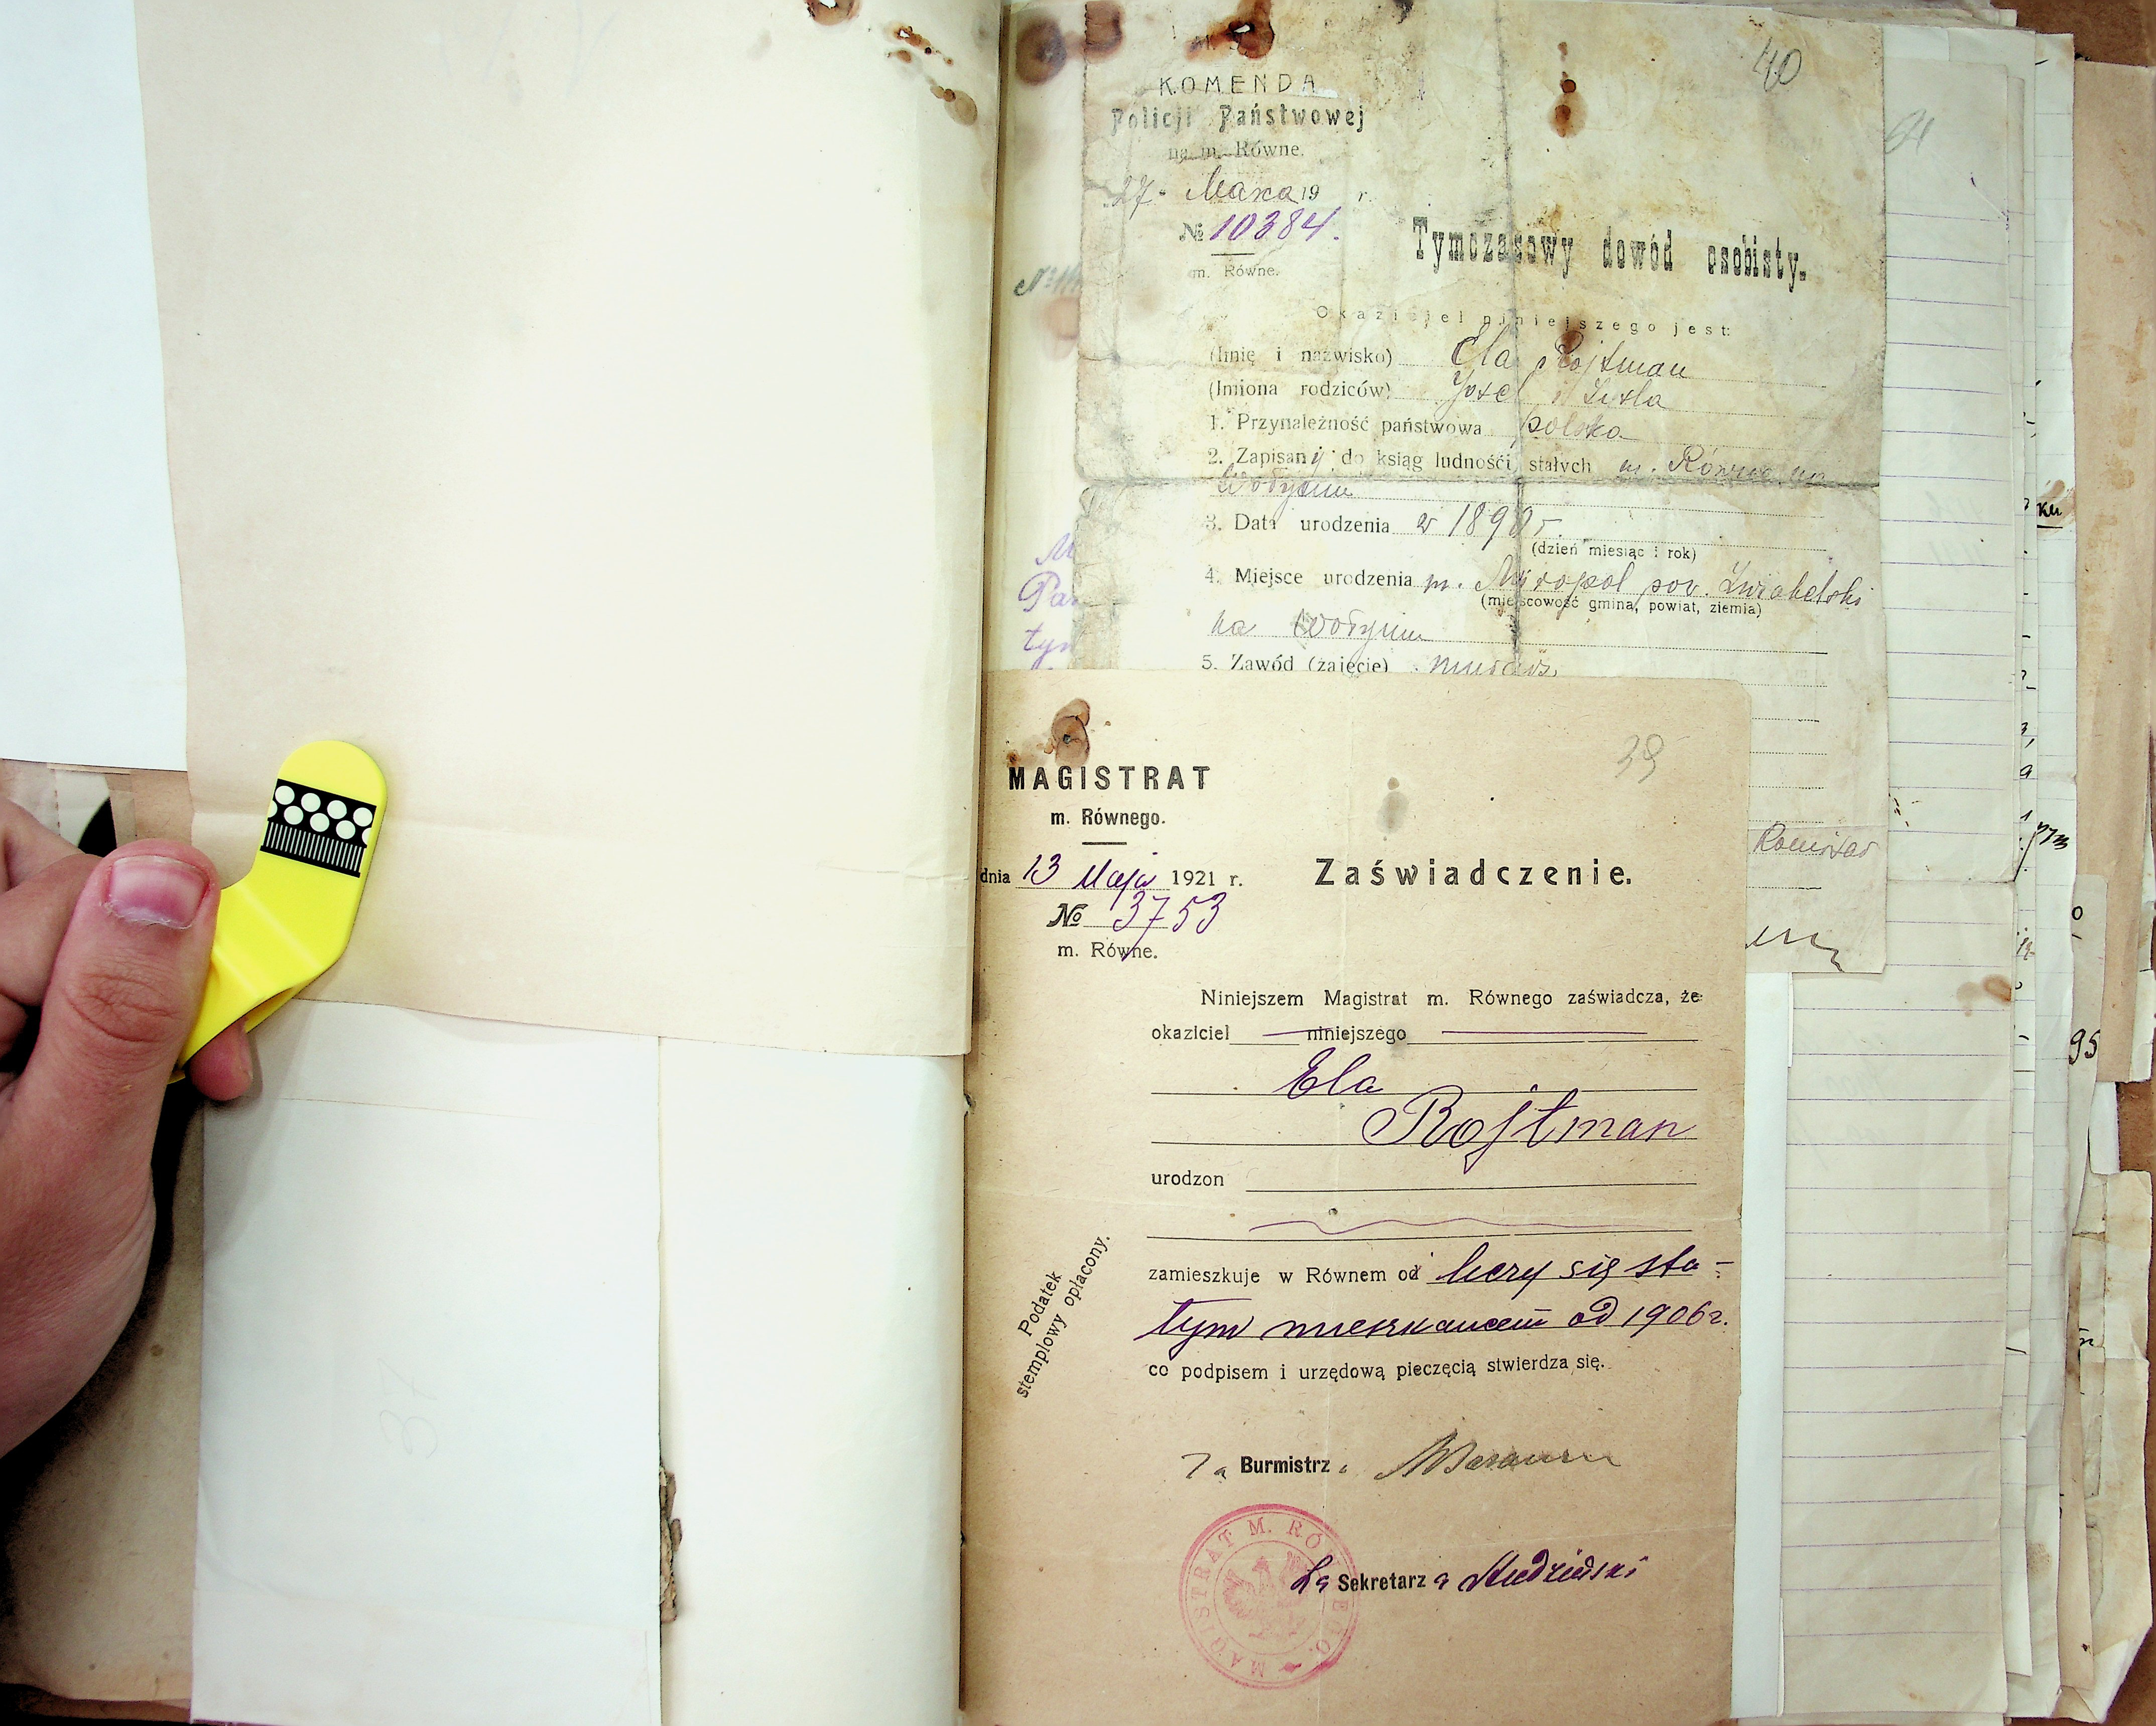 40
KOMENDA
Policji Państwowej
na m. Równe.
27 19 r.
№ 10384.
m. Równe.
Tymczasowy dowód osobisty.
Okaziciel niniejszego jest:
(Imię i nazwisko) Ela Rojtman
(Imiona rodziców) Josel i
1. Przynależność państwowa polska
2. Zapisany do ksiąg ludności stałych m. Równe na
Wołyniu
3. Data urodzenia w 1890 r.
(dzień miesiąc i rok)
4. Miejsce urodzenia m. Miropol pow. Zwiahelski
(miejscowość gmina, powiat, ziemia)
na Wołyniu
5. Zawód (zajęcie) murarz
39
MAGISTRAT
m. Równego.
dnia 13 Maja 1921 r.
№ 3753
m. Równe.
Zaświadczenie.
Niniejszem Magistrat m. Równego zaświadcza, że
okaziciel niniejszego
Ela
Rojtman
urodzon
zamieszkuje w Równem od liczy się sta-
łym mieszkańcem od 1906 r.
co podpisem i urzędową pieczęcią stwierdza się.
Podatek
stemplowy opłacony.
Za Burmistrza
Za Sekretarza
MAGISTRAT M. RÓWNEGO.
37
95